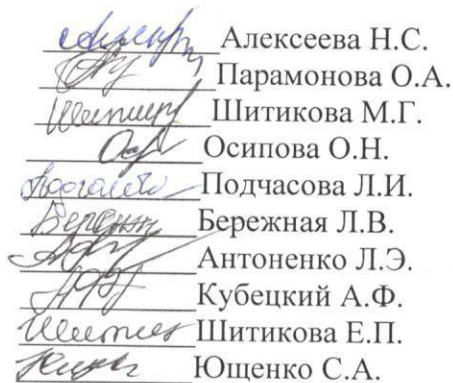 Алексеева Н.С.
Парамонова О.А.
Шитикова М.Г.
Осипова О.Н.
Подчасова Л.И.
Бережная Л.В.
Антоненко Л.Э.
Кубецкий А.Ф.
Шитикова Е.П.
Ющенко С.А.